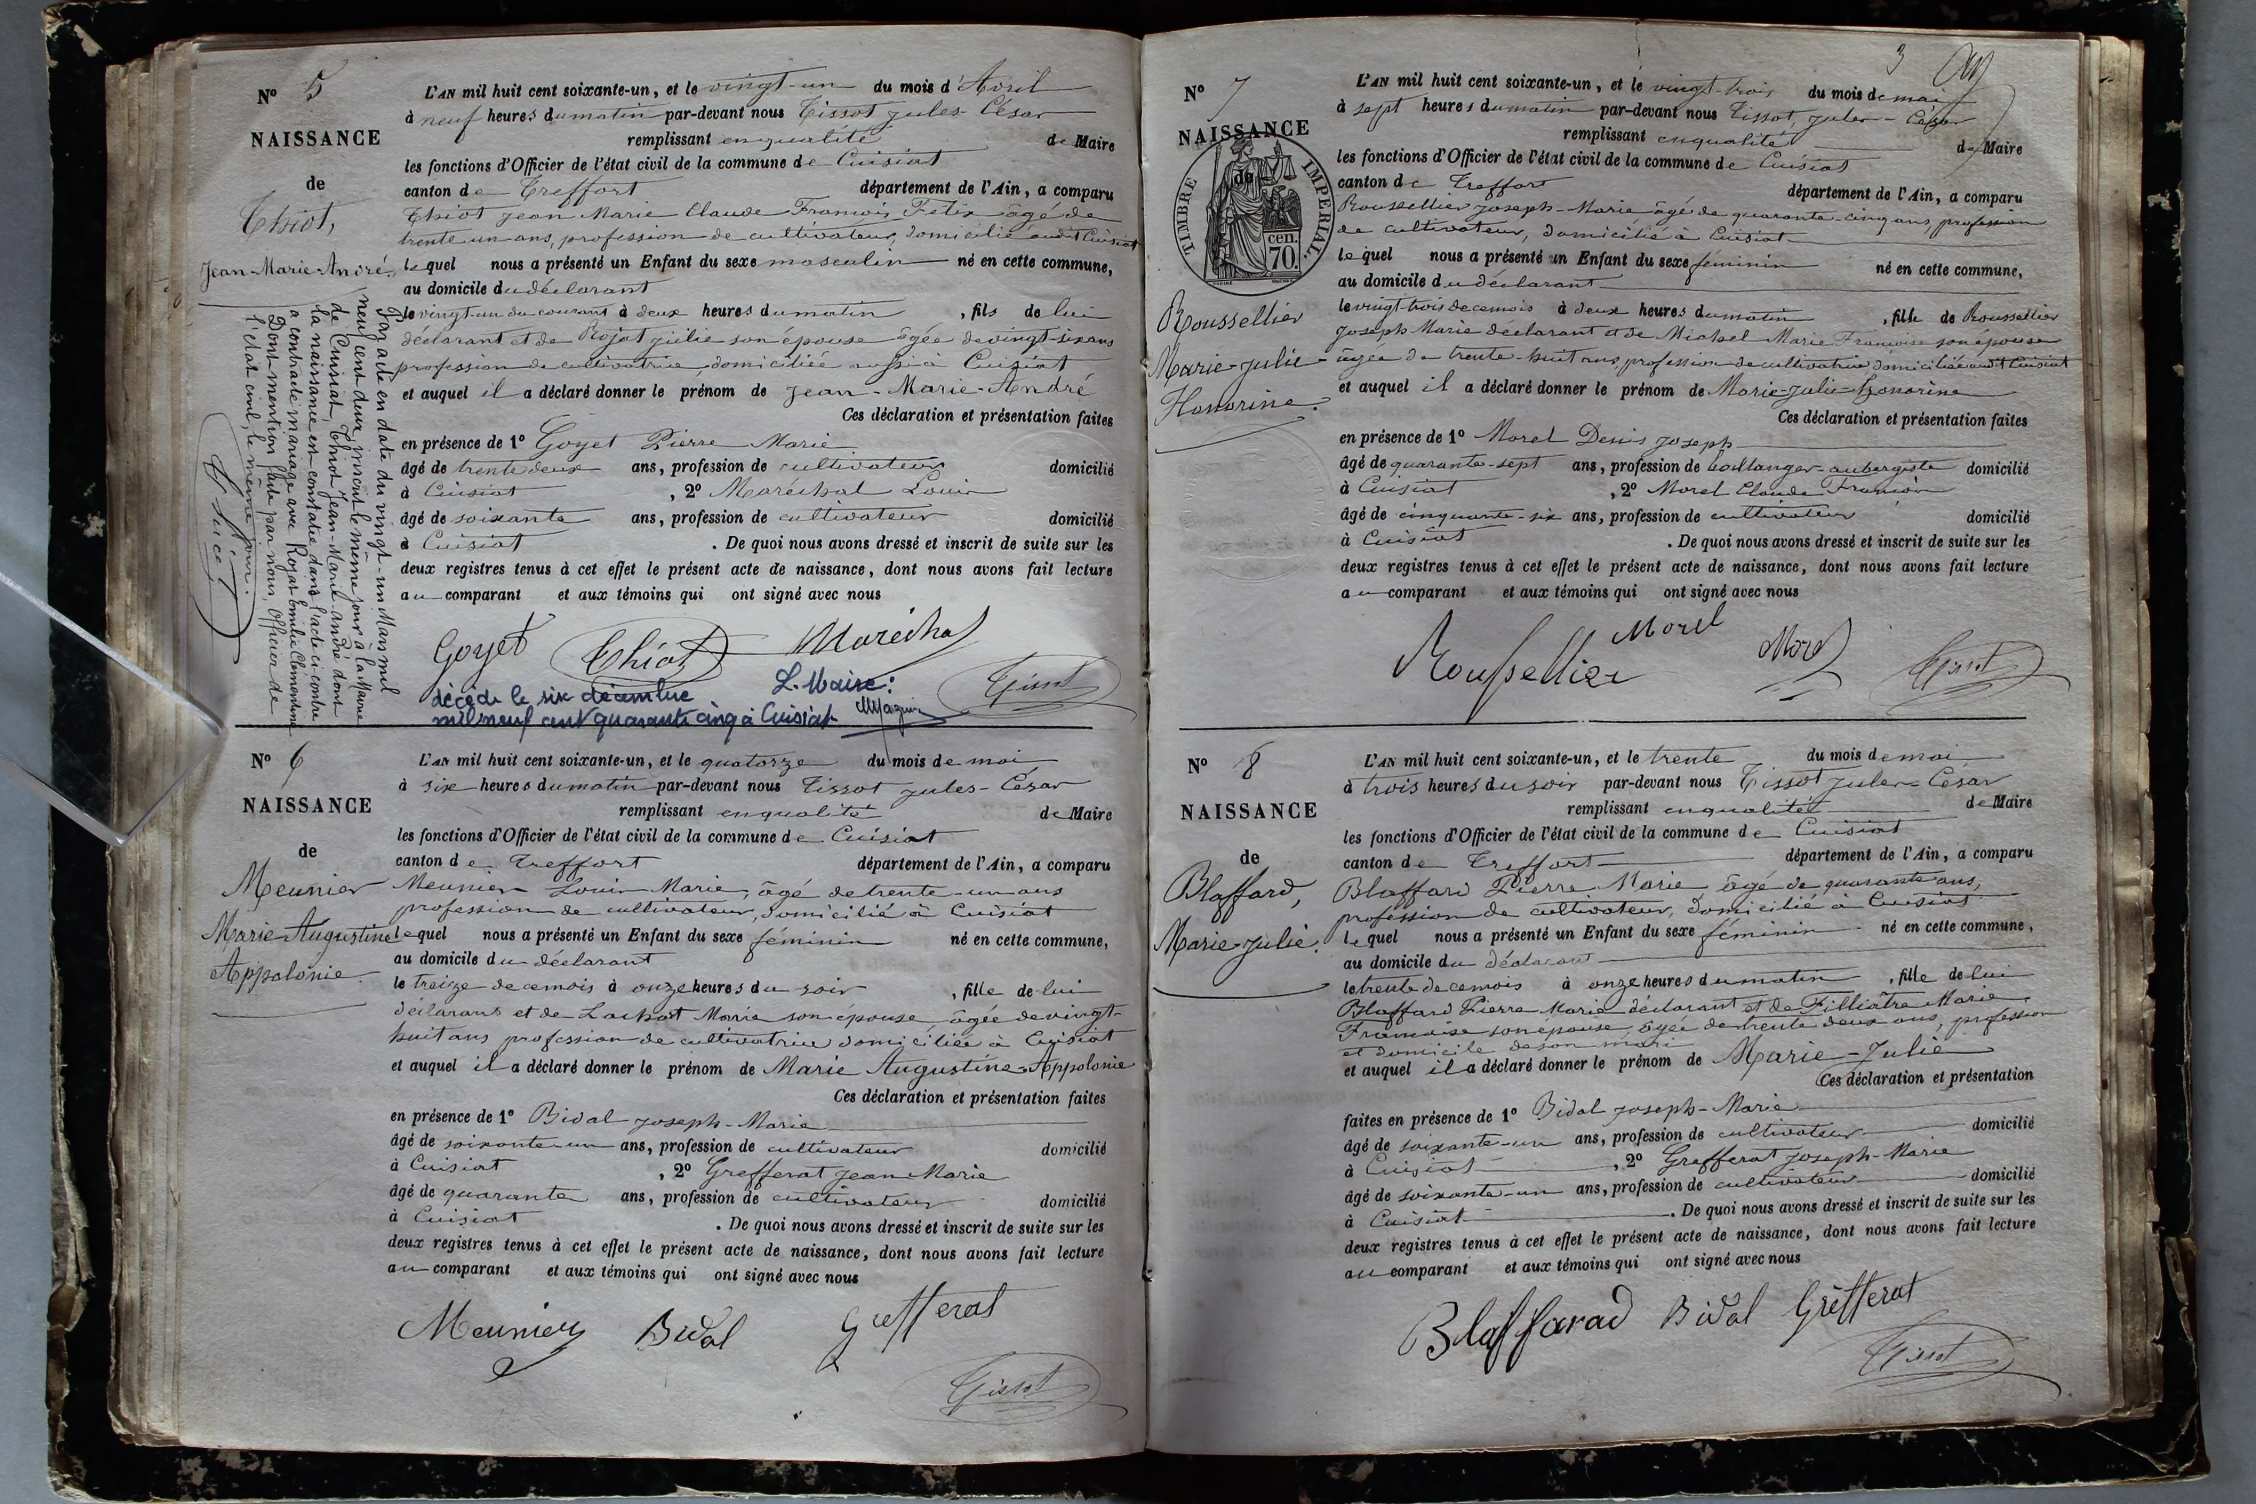 N° 5
NAISSANCE
de
Thiot,
Jean-Marie-André
L'AN mil huit cent soixante-un, et le vingt-un du mois d'Avril
à neuf heures du matin par-devant nous Tissot Jules-César
remplissant en qualité de Maire
les fonctions d'Officier de l'état civil de la commune de Cuisiat
canton de Treffort département de l'Ain, a comparu
Thiot Jean Marie Claude François Felix âgé de
trente un ans, profession de cultivateur, domicilié audit Cuisiat
lequel nous a présenté un Enfant du sexe masculin né en cette commune,
au domicile du déclarant
le vingt un du courant à deux heures du matin, fils de lui
déclarant et de Rojat Julie son épouse âgée de vingt-six ans
profession de cultivatrice domiciliée aussi à Cuisiat
et auquel il a déclaré donner le prénom de Jean-Marie-André
Ces déclaration et présentation faites
en présence de 1° Goyet Pierre Marie
âgé de trente deux ans, profession de cultivateur domicilié
à Cuisiat, 2° Maréchal Louis
âgé de soixante ans, profession de cultivateur domicilié
à Cuisiat. De quoi nous avons dressé et inscrit de suite sur les
deux registres tenus à cet effet le présent acte de naissance, dont nous avons fait lecture
au comparant et aux témoins qui ont signé avec nous
Goyet Thiot Maréchal
Tissot
décédé le six décembre
mil neuf cent quarante cinq à Cuisiat
Le Maire:
Par acte en date du vingt-un Mars mil
neuf cent deux, inscrit le même jour à la Mairie
de Cuisiat, Thiot Jean-Marie-André dont
la naissance est constatée dans l'acte ci-contre
a contracté mariage avec Rojat Emilie Clémentine
Dont mention faite par nous, Officier de
l'état civil, le même jour.
N° 6
NAISSANCE
de
Meunier
Marie Augustine
Appolonie
L'AN mil huit cent soixante-un, et le quatorze du mois de mai
à six heures du matin par-devant nous Tissot Jules-César
remplissant en qualité de Maire
les fonctions d'Officier de l'état civil de la commune de Cuisiat
canton de Treffort département de l'Ain, a comparu
Meunier Louis Marie, âgé de trente-un ans
profession de cultivateur, domicilié à Cuisiat
lequel nous a présenté un Enfant du sexe féminin né en cette commune,
au domicile du déclarant
le treize de ce mois à onze heures du soir, fille de lui
déclarant et de Lachat Marie son épouse âgée de vingt-
huit ans profession de cultivatrice domiciliée à Cuisiat
et auquel il a déclaré donner le prénom de Marie Augustine Appolonie
Ces déclaration et présentation faites
en présence de 1° Bidal Joseph-Marie
âgé de soixante-un ans, profession de cultivateur domicilié
à Cuisiat, 2° Grefferat Jean Marie
âgé de quarante ans, profession de cultivateur domicilié
à Cuisiat. De quoi nous avons dressé et inscrit de suite sur les
deux registres tenus à cet effet le présent acte de naissance, dont nous avons fait lecture
au comparant et aux témoins qui ont signé avec nous
Meunier Bidal Grefferat
Tissot
3
N° 7
NAISSANCE
de
TIMBRE IMPERIAL.
cen.
70.
Roussellier
Marie-Julie-
Honorine.
L'AN mil huit cent soixante-un, et le vingt-trois du mois de mai
à sept heures du matin par-devant nous Tissot, Jules-César
remplissant en qualité de Maire
les fonctions d'Officier de l'état civil de la commune de Cuisiat
canton de Treffort département de l'Ain, a comparu
Roussellier Joseph-Marie âgé de quarante-cinq ans, profession
de cultivateur, domicilié à Cuisiat
lequel nous a présenté un Enfant du sexe féminin né en cette commune,
au domicile du déclarant
le vingt-trois de ce mois à deux heures du matin, fille de Roussellier
Joseph Marie déclarant et de Michel Marie Françoise son épouse
âgée de trente-huit ans, profession de cultivatrice domiciliée audit Cuisiat
et auquel il a déclaré donner le prénom de Marie-Julie-Honorine
Ces déclaration et présentation faites
en présence de 1° Morel Denis Joseph
âgé de quarante-sept ans, profession de boulanger-aubergiste domicilié
à Cuisiat, 2° Morel Claude François
âgé de cinquante-six ans, profession de cultivateur domicilié
à Cuisiat. De quoi nous avons dressé et inscrit de suite sur les
deux registres tenus à cet effet le présent acte de naissance, dont nous avons fait lecture
au comparant et aux témoins qui ont signé avec nous
Roussellier Morel Morel
Tissot
N° 8
NAISSANCE
de
Blaffard,
Marie-Julie.
L'AN mil huit cent soixante-un, et le trente du mois de mai
à trois heures du soir par-devant nous Tissot Jules-César
remplissant en qualité de Maire
les fonctions d'Officier de l'état civil de la commune de Cuisiat
canton de Treffort département de l'Ain, a comparu
Blaffard Pierre Marie âgé de quarante ans,
profession de cultivateur, domicilié à Cuisiat
lequel nous a présenté un Enfant du sexe féminin né en cette commune,
au domicile du déclarant
le trente de ce mois à onze heures du matin, fille de lui
Blaffard Pierre Marie déclarant et de Filliâtre Marie
Françoise son épouse, âgée de trente deux ans, profession
et domicile de son mari
et auquel il a déclaré donner le prénom de Marie-Julie
Ces déclaration et présentation
faites en présence de 1° Bidal Joseph-Marie
âgé de soixante-un ans, profession de cultivateur domicilié
à Cuisiat, 2° Grefferat Joseph-Marie
âgé de soixante-un ans, profession de cultivateur domicilié
à Cuisiat. De quoi nous avons dressé et inscrit de suite sur les
deux registres tenus à cet effet le présent acte de naissance, dont nous avons fait lecture
au comparant et aux témoins qui ont signé avec nous
Blaffarad Bidal Grefferat
Tissot